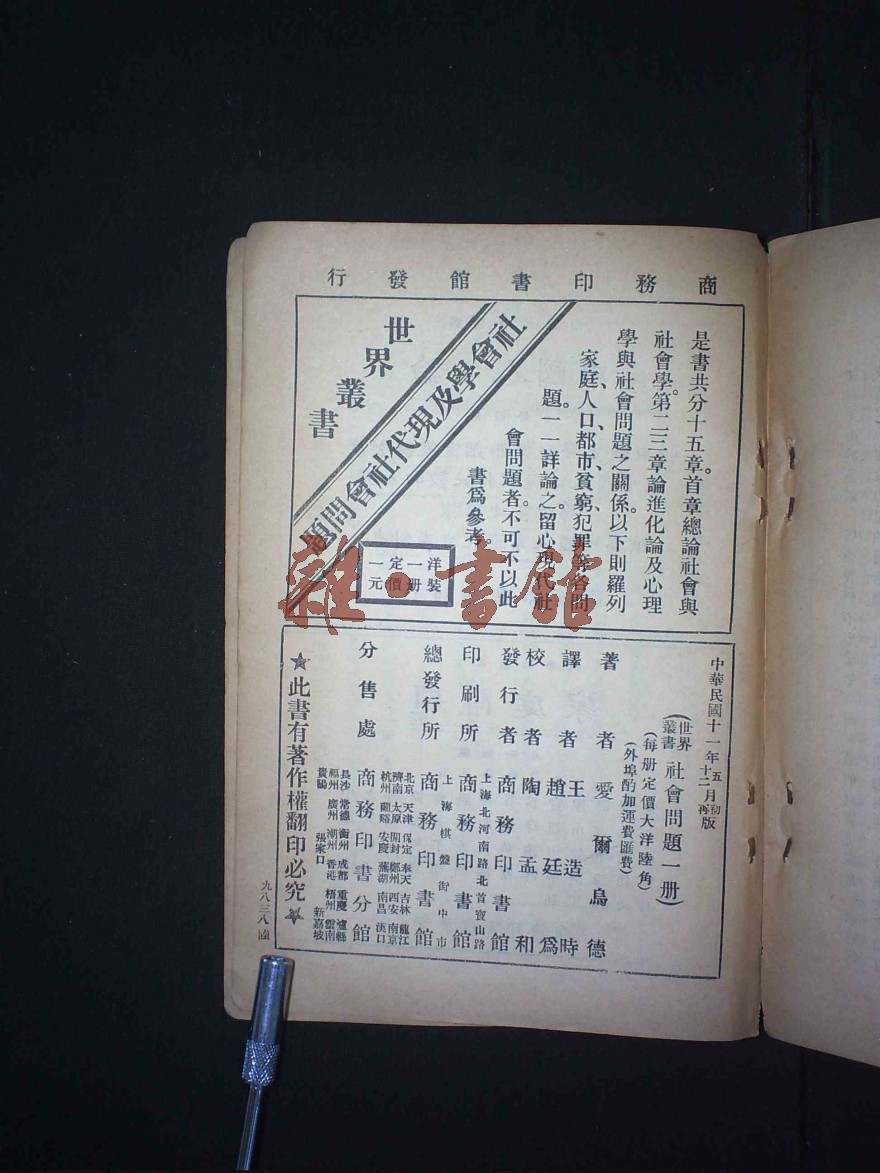 商務印書館發行
是書共分十五章。首章總論社會與
社會學。第二三章論進化論及心理
學與社會問題之關係。以下則羅列
家庭、人口、都市、貧窮、犯罪等各問
題。一一詳論之。留心現代社
會問題者。不可不以此
書爲參考。
社會學及現代社會問題
世界叢書
洋裝
一册
定價
一元
雜·書館
中華民國十一年五月初版
十二月再版
(世界叢書 社會問題一册)
(每册定價大洋陸角)
(外埠酌加運費匯費)
著者 愛爾烏德
譯者 王造時
趙廷爲
校者 陶孟和
發行者 商務印書館
上海北河南路北首寶山路
印刷所 商務印書館
上海棋盤街中市
總發行所 商務印書館
北京 天津 保定 奉天 吉林 龍江
濟南 太原 開封 鄭州 西安 南京
杭州 蘭谿 安慶 蕪湖 南昌 漢口
分售處 商務印書分館
長沙 常德 衡州 成都 重慶 瀘縣
福州 廣州 潮州 香港 梧州 雲南
貴陽 張家口 新嘉坡
★此書有著作權翻印必究★
九八三八